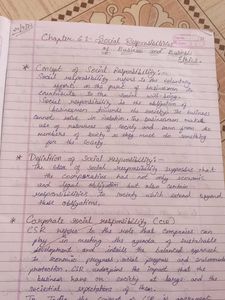 Chapter 6: Social Responsibilities
of Business and Business
Ethics
* Concept of Social Responsibility:-
Social responsibility refers to the voluntary
efforts on the part of businessmen to
contribute to the social well being.
Social responsibility is the obligation of
businessmen towards the society. The business
cannot solve in isolation. The businessmen make
use of resources of society and earn from the
members of society so they must do something
for the society.
* Definition of Social Responsibility:-
The idea of social responsibility supposes that
the corporation has not only economic
and legal obligation but also certain
responsibilities to society which extend beyond
these obligations.
* Corporate Social responsibility (CSR)
CSR refers to the role that companies can
play in meeting the agenda of sustainable
development and entails the balanced approach
to economic progress, social progress and environmental
protection. CSR underpins the impact that the
business have on society at large and the
societal expectations of them.
In India the concept of CSR is